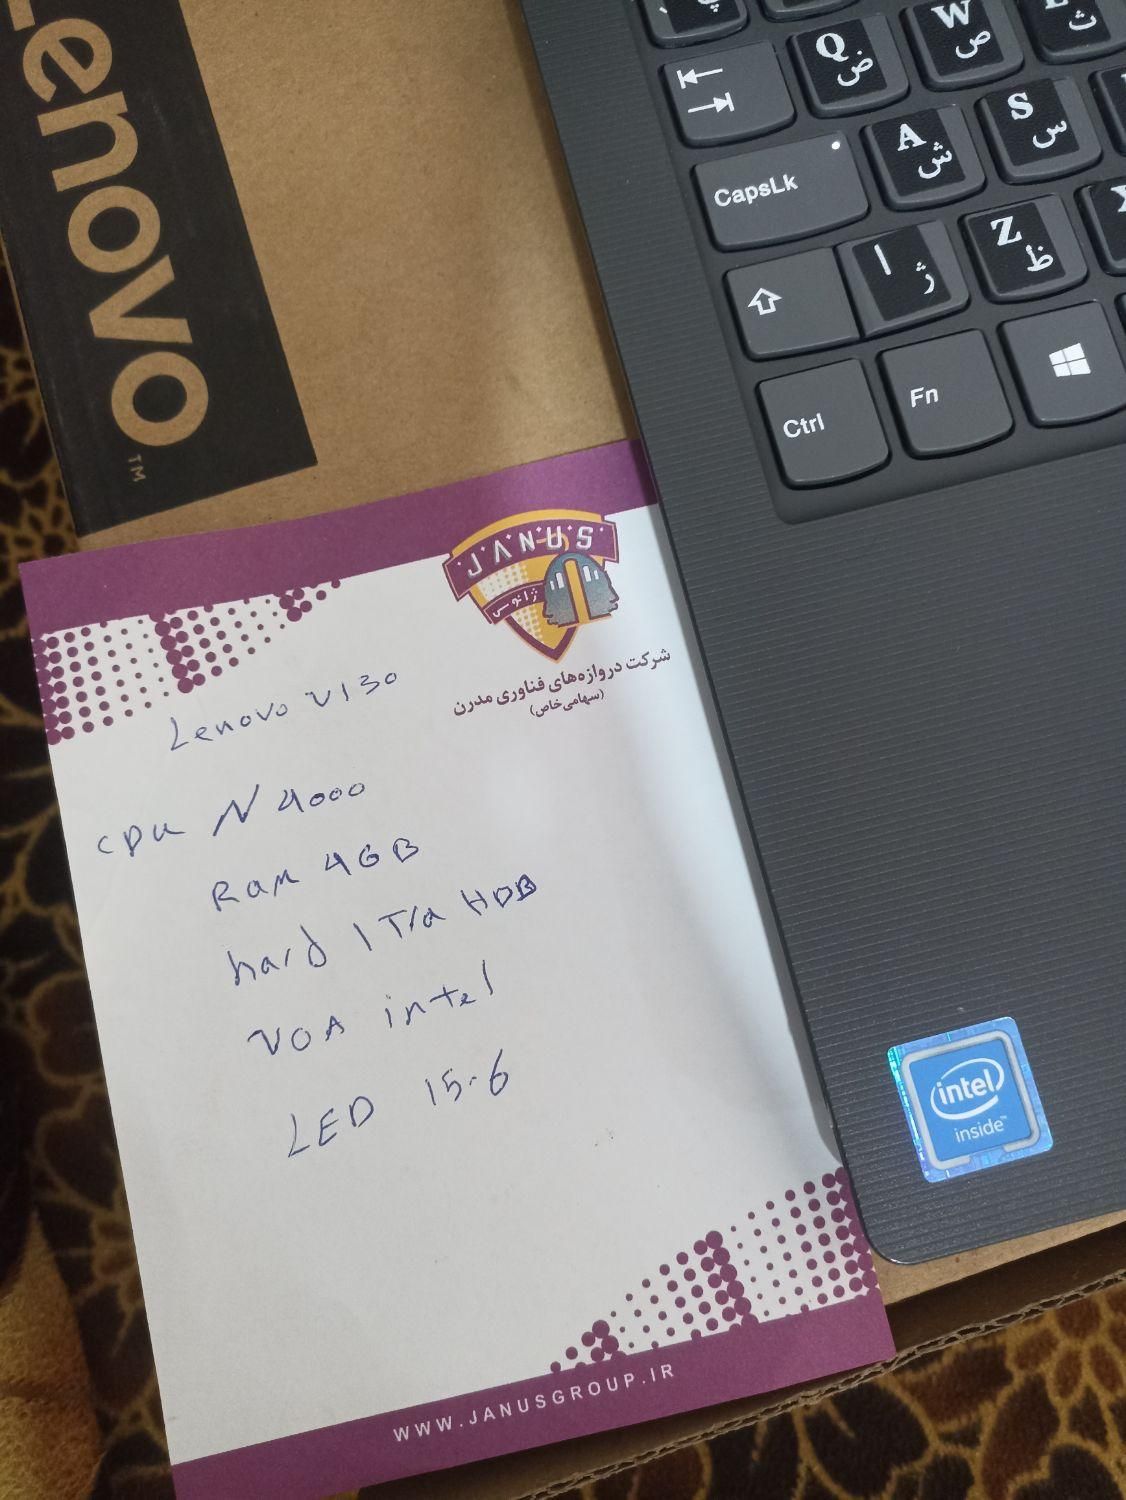 Lenovo
TM
پ
Q
ض
W
ص
ث
A
ش
S
س
CapsLk
ا
ژ
Z
ظ
X
Ctrl
Fn
JANUS
ژانوس
شرکت دروازه‌های فناوری مدرن
(سهامی‌خاص)
Lenovo V130
cpu N4000
Ram 4GB
hard 1 T/a HDB
VOA intel
LED 15.6
intel
inside™
WWW.JANUSGROUP.IR